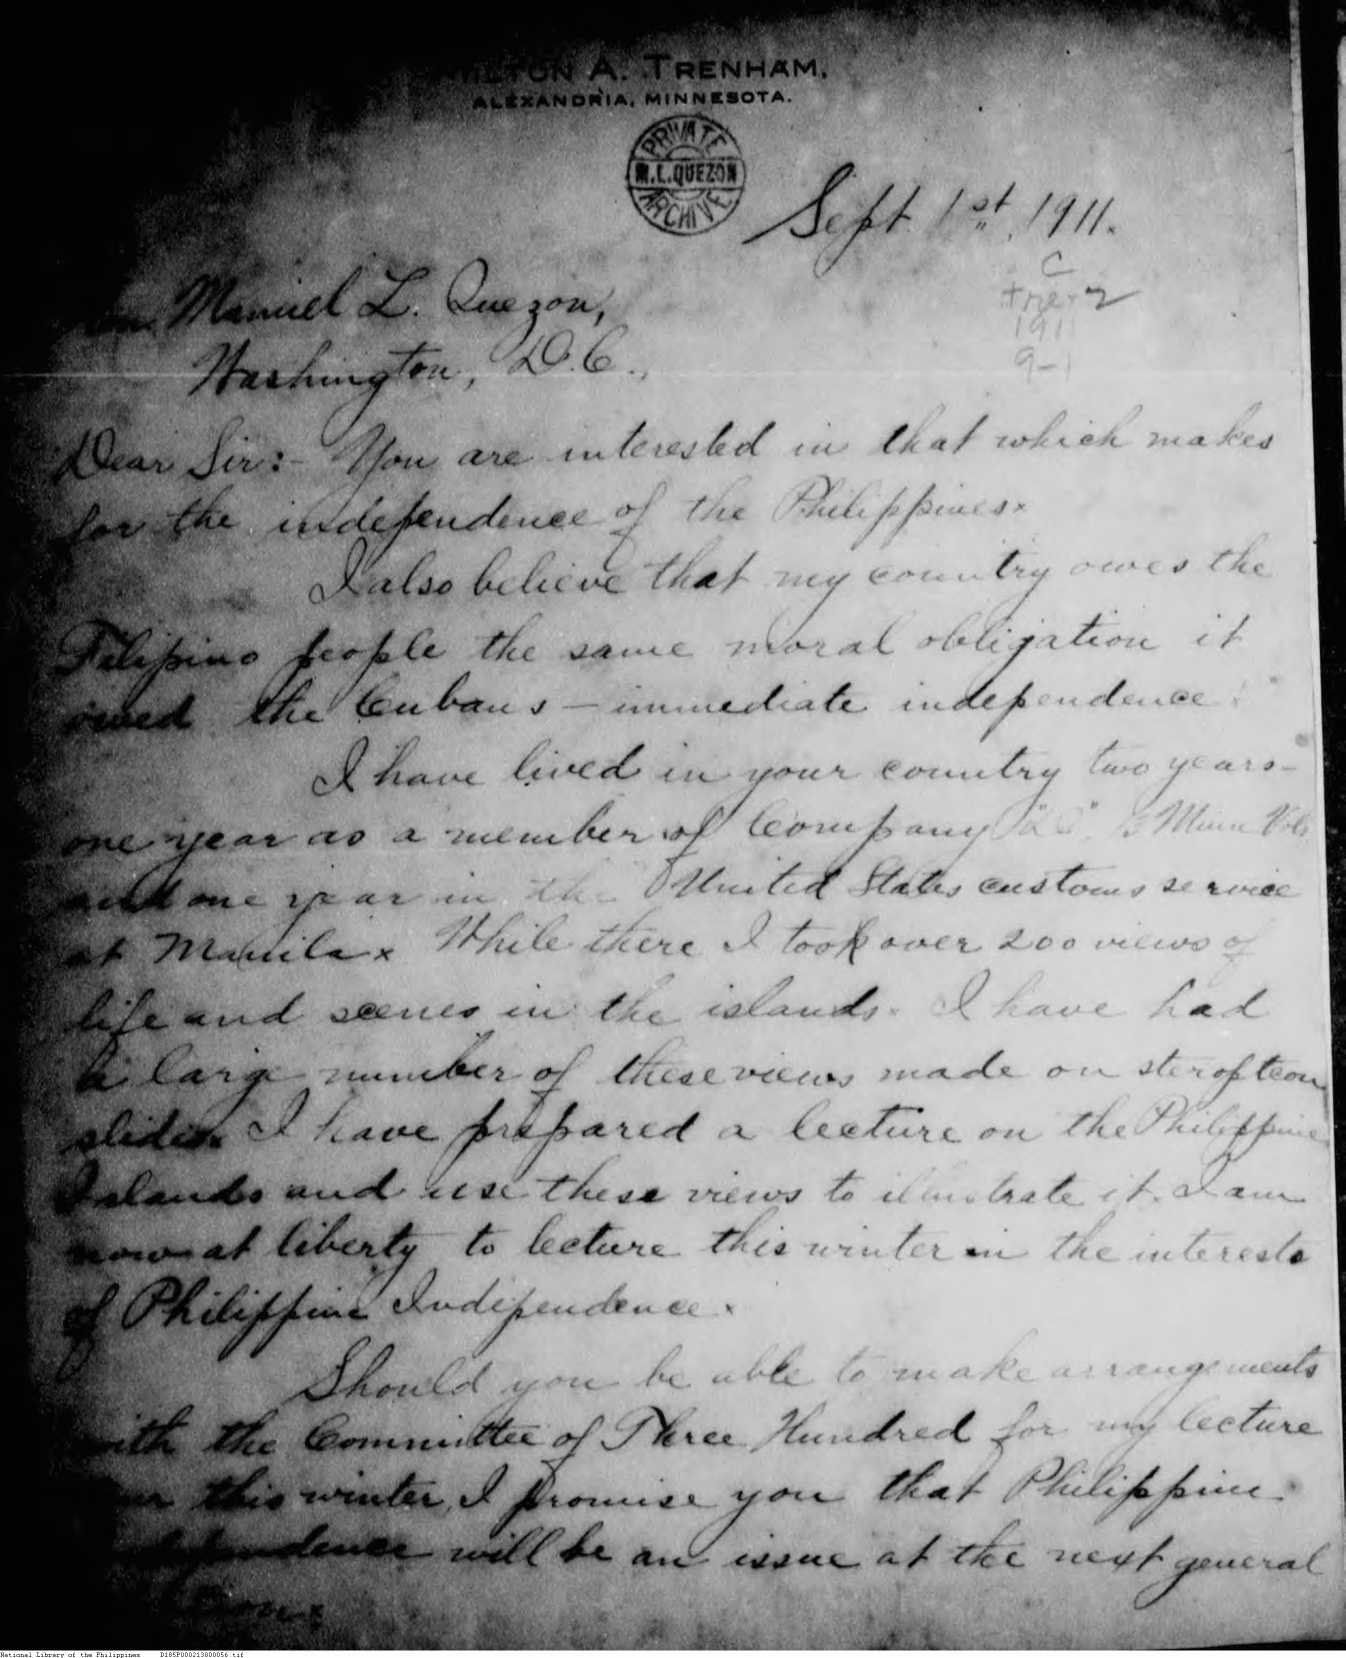 A. TRENHAM,
ALEXANDRIA, MINNESOTA.
PRIVATE
M. L. QUEZON
ARCHIVE
Sept. 1st, 1911.
C
1911
9-1
Manuel L. Quezon,
Washington, D.C.,
Dear Sir:- You are interested in that which makes
for the independence of the Philippines.
I also believe that my country owes the
Filipino people the same moral obligation it
owed the Cubans – immediate independence.
I have lived in your country two years –
one year as a member of Company Minn Vols
and one year in the United States customs service
at Manila. While there I took over 200 views of
life and scenes in the islands. I have had
a large number of these views made on steropticon
slides. I have prepared a lecture on the Philippine
Islands and use these views to illustrate it. I am
now at liberty to lecture this winter in the interests
of Philippine Independence.
Should you be able to make arrangements
with the Committee of Three Hundred for my lecture
this winter, I promise you that Philippine
will be an issue at the next general
National Library of the Philippines D185P000213800056.tif